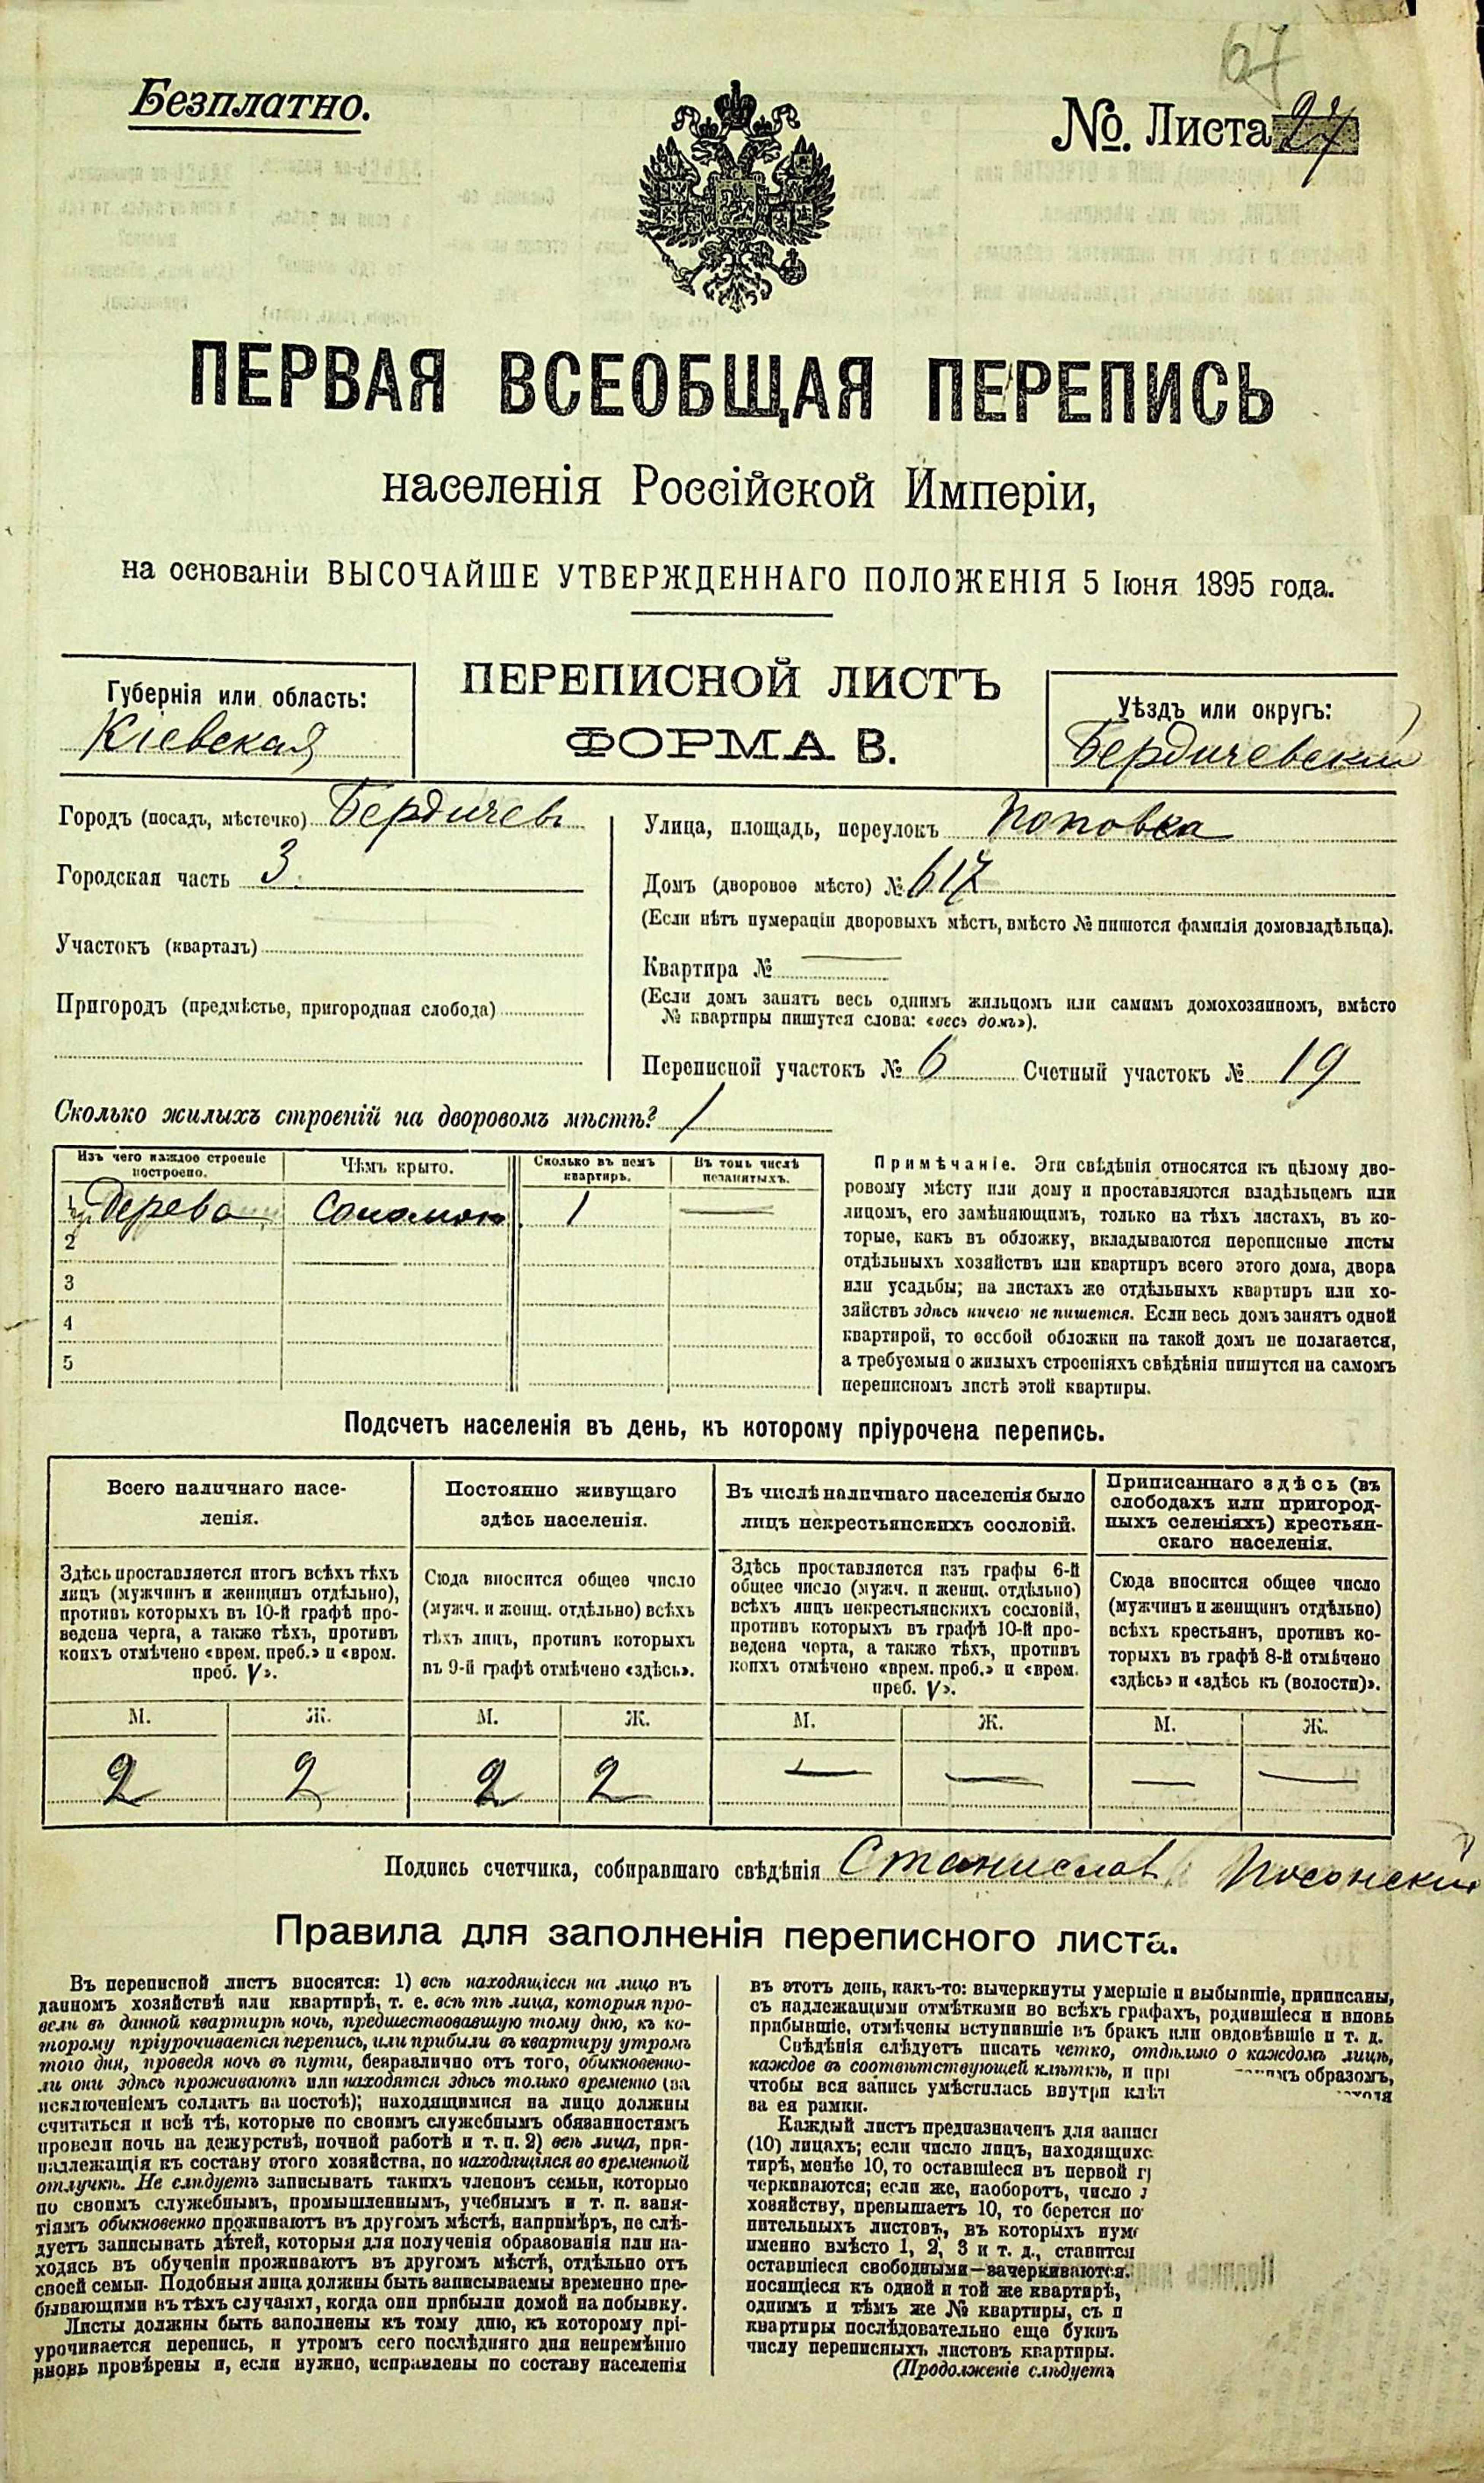 67
Безплатно.
№. Листа 27
ПЕРВАЯ ВСЕОБЩАЯ ПЕРЕПИСЬ
населенія Россійской Имперіи,
на основаніи ВЫСОЧАЙШЕ УТВЕРЖДЕННАГО ПОЛОЖЕНІЯ 5 Іюня 1895 года.
Губернія или область:
Кіевская
ПЕРЕПИСНОЙ ЛИСТЪ
ФОРМА В.
Уѣздъ или округъ:
Бердичевскій
Городъ (посадъ, мѣстечко) Бердичевъ
Городская часть 3
Участокъ (кварталъ)
Пригородъ (предмѣстье, пригородная слобода)
Улица, площадь, переулокъ Поповка
Домъ (дворовое мѣсто) № 617
(Если нѣтъ нумераціи дворовыхъ мѣстъ, вмѣсто № пишется фамилія домовладѣльца).
Квартира № —
(Если домъ занятъ весь однимъ жильцомъ или самимъ домохозяиномъ, вмѣсто
№ квартиры пишутся слова: «весь домъ»).
Переписной участокъ № 6 Счетный участокъ № 19
Сколько жилыхъ строеній на дворовомъ мѣстѣ? 1
Изъ чего каждое строеніе
построено.
Чѣмъ крыто.
Сколько въ немъ
квартиръ.
Въ томъ числѣ
незанятыхъ.
1 Дерево Соломою 1 —
2
3
4
5
Примѣчаніе. Эти свѣдѣнія относятся къ цѣлому дво-
ровому мѣсту или дому и проставляются владѣльцемъ или
лицомъ, его замѣняющимъ, только на тѣхъ листахъ, въ ко-
торые, какъ въ обложку, вкладываются переписные листы
отдѣльныхъ хозяйствъ или квартиръ всего этого дома, двора
или усадьбы; на листахъ же отдѣльныхъ квартиръ или хо-
зяйствъ здѣсь ничего не пишется. Если весь домъ занятъ одной
квартирой, то особой обложки на такой домъ не полагается,
а требуемыя о жилыхъ строеніяхъ свѣдѣнія пишутся на самомъ
переписномъ листѣ этой квартиры.
Подсчетъ населенія въ день, къ которому пріурочена перепись.
Всего наличнаго насе-
ленія.
Здѣсь проставляется итогъ всѣхъ тѣхъ
лицъ (мужчинъ и женщинъ отдѣльно),
противъ которыхъ въ 10-й графѣ про-
ведена черта, а также тѣхъ, противъ
коихъ отмѣчено «врем. преб.» и «врем.
преб. V».
Постоянно живущаго
здѣсь населенія.
Сюда вносится общее число
(мужч. и женщ. отдѣльно) всѣхъ
тѣхъ лицъ, противъ которыхъ
въ 9-й графѣ отмѣчено «здѣсь».
Въ числѣ наличнаго населенія было
лицъ некрестьянскихъ сословій.
Здѣсь проставляется изъ графы 6-й
общее число (мужч. и женщ. отдѣльно)
всѣхъ лицъ некрестьянскихъ сословій,
противъ которыхъ въ графѣ 10-й про-
ведена черта, а также тѣхъ, противъ
коихъ отмѣчено «врем. преб.» и «врем.
преб. V».
Приписаннаго здѣсь (въ
слободахъ или пригород-
ныхъ селеніяхъ) крестьян-
скаго населенія.
Сюда вносится общее число
(мужчинъ и женщинъ отдѣльно)
всѣхъ крестьянъ, противъ ко-
торыхъ въ графѣ 8-й отмѣчено
«здѣсь» и «здѣсь къ (волости)».
М. Ж. М. Ж. М. Ж. М. Ж.
2 2 2 2 — — — —
Подпись счетчика, собиравшаго свѣдѣнія Станиславъ
Правила для заполненія переписного листа.
Въ переписной листъ вносятся: 1) всѣ находящіеся на лицо въ
данномъ хозяйствѣ или квартирѣ, т. е. всѣ тѣ лица, которыя про-
вели въ данной квартирѣ ночь, предшествовавшую тому дню, къ ко-
торому пріурочивается перепись, или прибыли въ квартиру утромъ
того дня, проведя ночь въ пути, безразлично отъ того, обыкновенно-
ли они здѣсь проживаютъ или находятся здѣсь только временно (за
исключеніемъ солдатъ на постоѣ); находящимися на лицо должны
считаться и всѣ тѣ, которые по своимъ служебнымъ обязанностямъ
провели ночь на дежурствѣ, ночной работѣ и т. п. 2) всѣ лица, при-
надлежащія къ составу этого хозяйства, но находящіяся во временной
отлучкѣ. Не слѣдуетъ записывать такихъ членовъ семьи, которые
по своимъ служебнымъ, промышленнымъ, учебнымъ и т. п. заня-
тіямъ обыкновенно проживаютъ въ другомъ мѣстѣ, напримѣръ, не слѣ-
дуетъ записывать дѣтей, которыя для полученія образованія или на-
ходясь въ обученіи проживаютъ въ другомъ мѣстѣ, отдѣльно отъ
своей семьи. Подобныя лица должны быть записываемы временно пре-
бывающими въ тѣхъ случаяхъ, когда они прибыли домой на побывку.
Листы должны быть заполнены къ тому дню, къ которому прі-
урочивается перепись, и утромъ сего послѣдняго дня непремѣнно
вновь провѣрены и, если нужно, исправлены по составу населенія
въ этотъ день, какъ-то: вычеркнуты умершіе и выбывшіе, приписаны,
съ надлежащими отмѣтками во всѣхъ графахъ, родившіеся и вновь
прибывшіе, отмѣчены вступившіе въ бракъ или овдовѣвшіе и т. д.
Свѣдѣнія слѣдуетъ писать четко, отдѣльно о каждомъ лицѣ,
каждое въ соотвѣтствующей клѣткѣ, и образомъ,
чтобы вся запись умѣстилась внутри
ва ея рамки.
Каждый листъ предназначенъ для
(10) лицахъ; если число лицъ,
тирѣ, менѣе 10, то оставшіеся въ первой
черкиваются; если же, наоборотъ, число
хозяйству, превышаетъ 10, то берется
нительныхъ листовъ, въ которыхъ
именно вмѣсто 1, 2, 3 и т. д., ставится
оставшіеся свободными—зачеркиваются.
носящіеся къ одной и той же квартирѣ,
однимъ и тѣмъ же № квартиры, съ
квартиры послѣдовательно еще буквъ
числу переписныхъ листовъ квартиры.
(Продолженіе слѣдуетъ